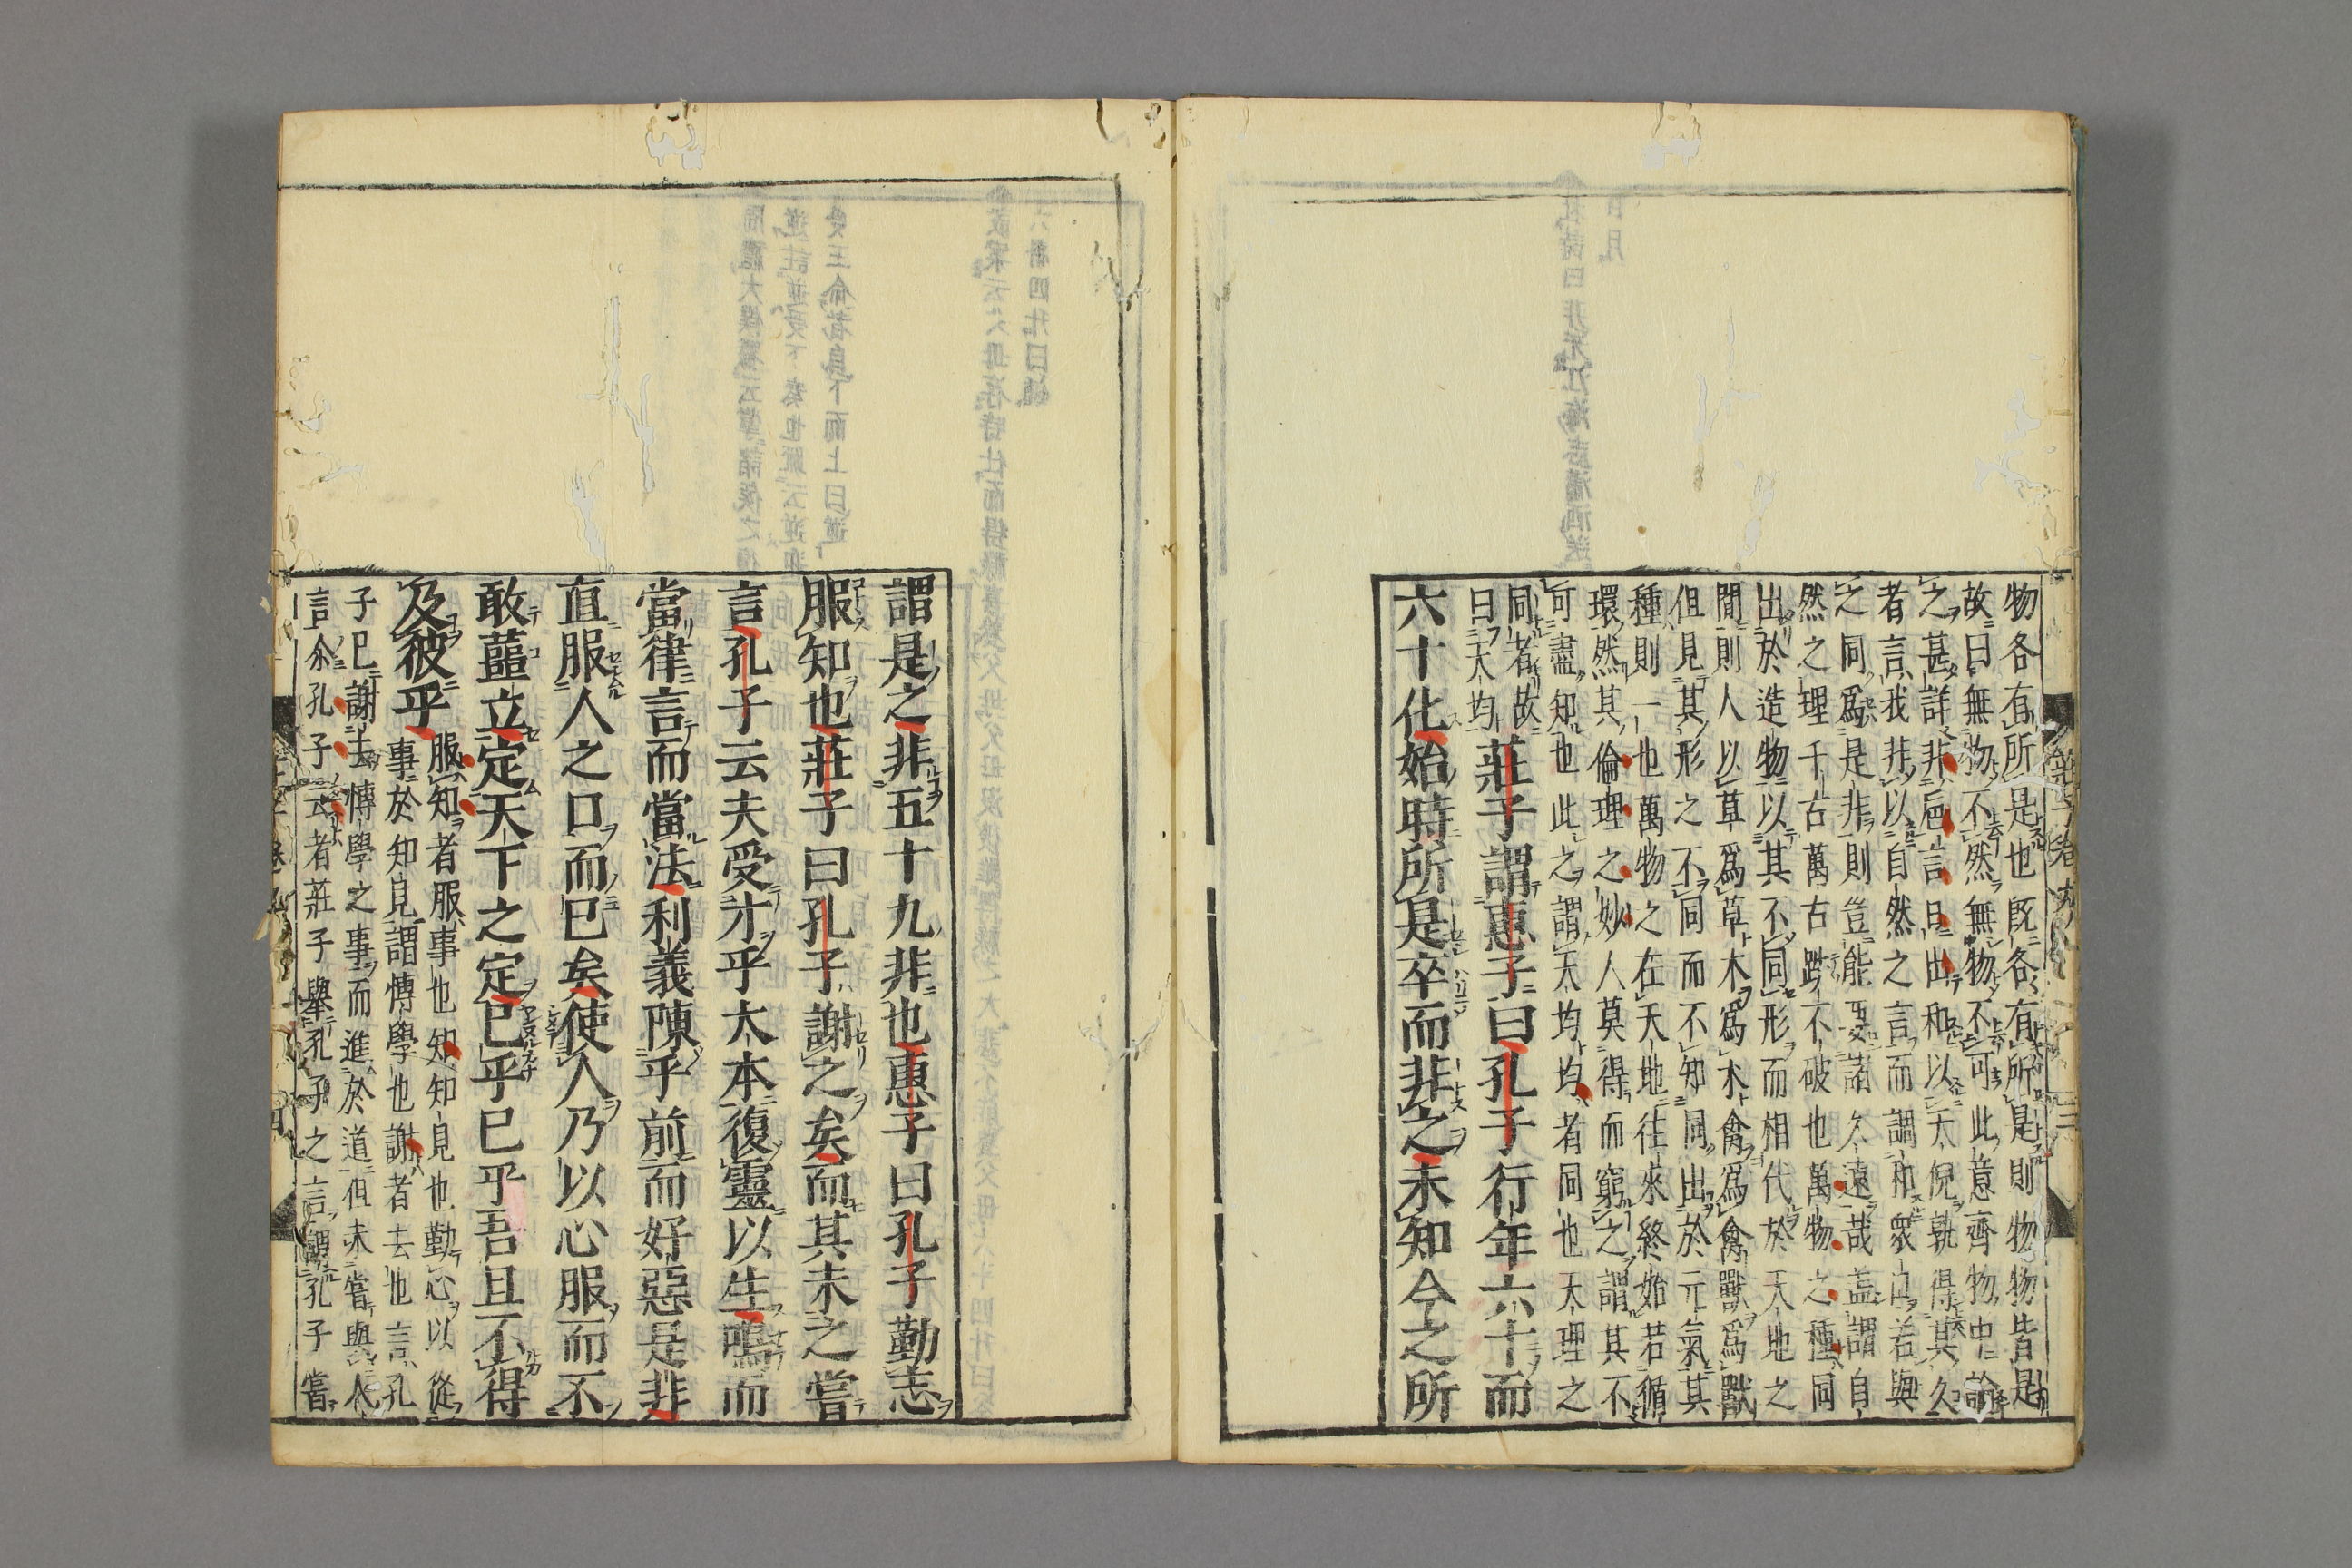 物各有所是也既各有所是則物物皆是
故曰無物不然無物不可此意齊物中論
之甚詳非巵言日出和以天倪孰得其久
者言我非以自然之言而調和衆口若與
之同爲是非則豈能要諸久遠哉盖謂自
然之理千古萬古跌不破也萬物之種同
出於造物以其不同形而相代於天地之
間則人以草爲草木爲木禽爲禽獸爲獸
但見其形之不同而不知同出於元氣其
種則一也萬物之在天地往來終始若循
環然其倫理之妙人莫得而窮之謂其不
可盡知也此之謂天均均者同也天理之
同者故
曰天均
莊子謂惠子曰孔子行年六十而
六十化始時所是卒而非之未知今之所
謂是之非五十九非也惠子曰孔子勤志
服知也莊子曰孔子謝之矣而其未之嘗
言孔子云夫受才乎大本復靈以生鳴而
當律言而當法利義陳乎前而好惡是非
直服人之口而已矣使人乃以心服而不
敢蘁立定天下之定已乎已乎吾且不得
及彼乎
服知者服事也知知見也勤心以從
事於知見謂博學也謝者去也言孔
子已謝去博學之事而進於道但未嘗與人
言尒孔子云者莊子舉孔子之言謂孔子嘗